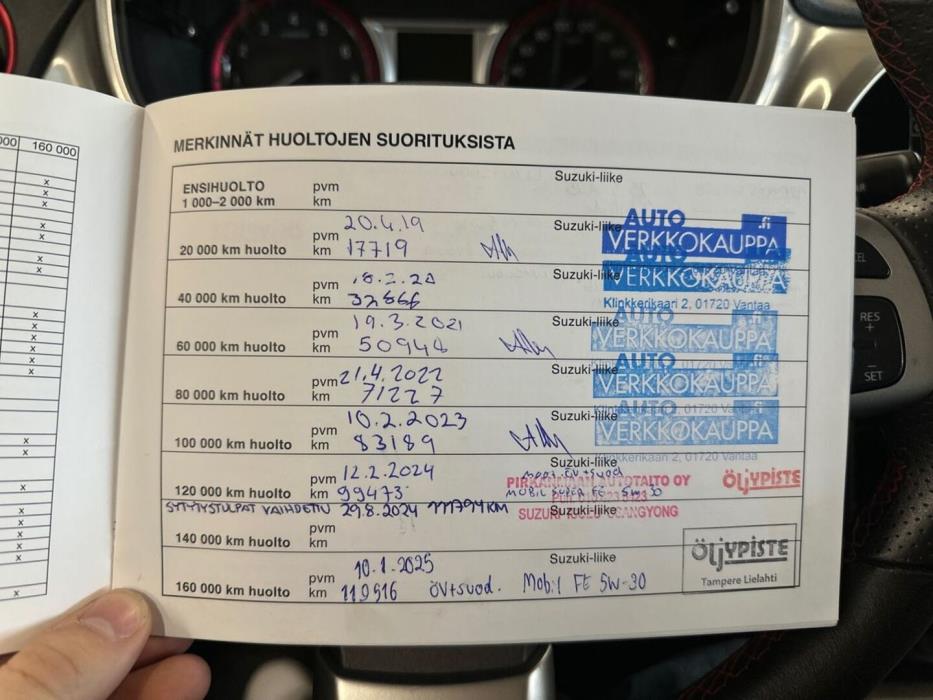 000 160 000
MERKINNÄT HUOLTOJEN SUORITUKSISTA
ENSIHUOLTO pvm Suzuki-liike
1 000–2 000 km km
pvm 20.4.19 Suzuki-liike AUTO .fi
20 000 km huolto km 17719 VERKKOKAUPPA
pvm 18.2.20 Suzuki-liike AUTO VERKKOKAUPPA
40 000 km huolto km 32866 Klinkkerikaari 2, 01720 Vantaa
pvm 19.3.2021 Suzuki-liike AUTO
60 000 km huolto km 50948 VERKKOKAUPPA
pvm 21.4.2022 Suzuki-liike AUTO .fi
80 000 km huolto km 71227 VERKKOKAUPPA
pvm 10.2.2023 Suzuki-liike AUTO .fi
100 000 km huolto km 83189 VERKKOKAUPPA
Klinkkerikaari 2, 01720 Vantaa
pvm 12.2.2024 Suzuki-liike
120 000 km huolto km 99473 PIRKANMAAN AUTOTAITO OY ÖLJYPISTE
MOBIL SUPER FE 5W-30
SYTYTYSTULPAT VAIHDETTU 29.8.2024 111794KM Suzuki-liike
SSANGYONG
pvm
140 000 km huolto km
pvm 10.1.2025 Suzuki-liike ÖLJYPISTE
160 000 km huolto km 119516 ÖV+suod. Mobil FE 5W-30 Tampere Lielahti
RES
+
SET